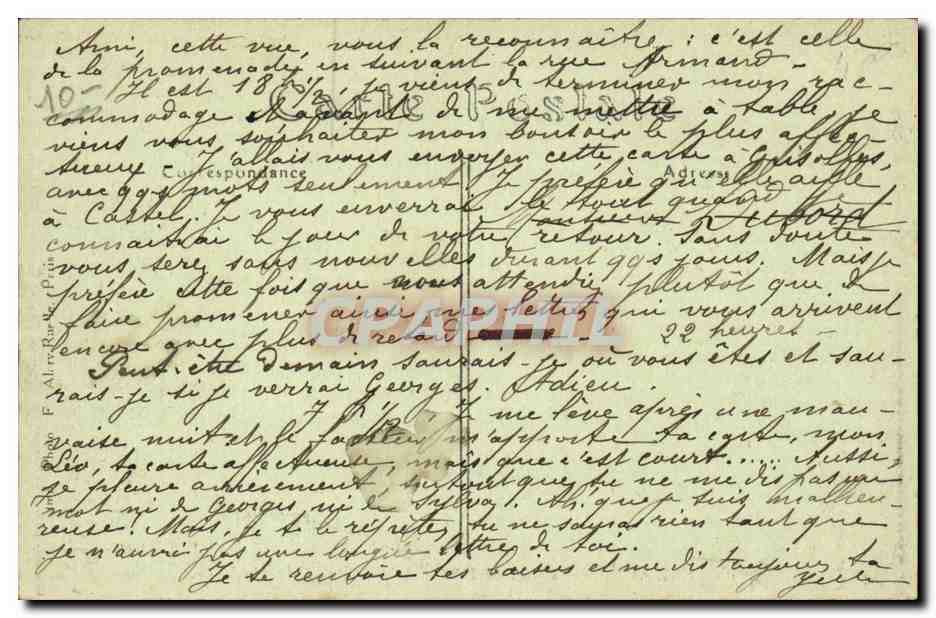 Ami, cette vue, vous la reconnaître : c'est celle
de la promenade, en suivant la rue Armand -
10-
Il est 18 h 1/2, je viens de terminer mon rac-
Carte Postale
commodage Madame de me mettre à table, je
viens vous souhaiter mon bonsoir le plus affec-
tueux - J'allais vous envoyer cette carte à Grisolles,
Correspondance
Adresse
avec qqs mots seulement. Je préfère qu'elle aille
à Castel. Je vous enverrai le tout quand
connaîtrai le jour de votre retour. Sans doute
vous serez sans nouvelles durant qqs jours. Mais je
préfère cette fois que vous attendiez plutôt que de
faire promener ainsi mes lettres qui vous arrivent
CPAPHIL
encore avec plus de retard -
22 heures -
Peut-être demain saurais-je où vous êtes et sau-
rais-je si je verrai Georges. Adieu.
7 h 1/2 Je me lève après une mau-
vaise nuit et le facteur m'apporte ta carte, mon
Léo, ta carte affectueuse, mais que c'est court..... Aussi,
je pleure amèrement, surtout que tu ne me dis pas un
mot ni de Georges, ni de Sylva. Ah, que je suis malheu-
reuse! Mais, je te le répète, tu ne sauras rien tant que
je n'aurai pas une longue lettre de toi.
Je te renvoie tes baisers et me dis toujours ta